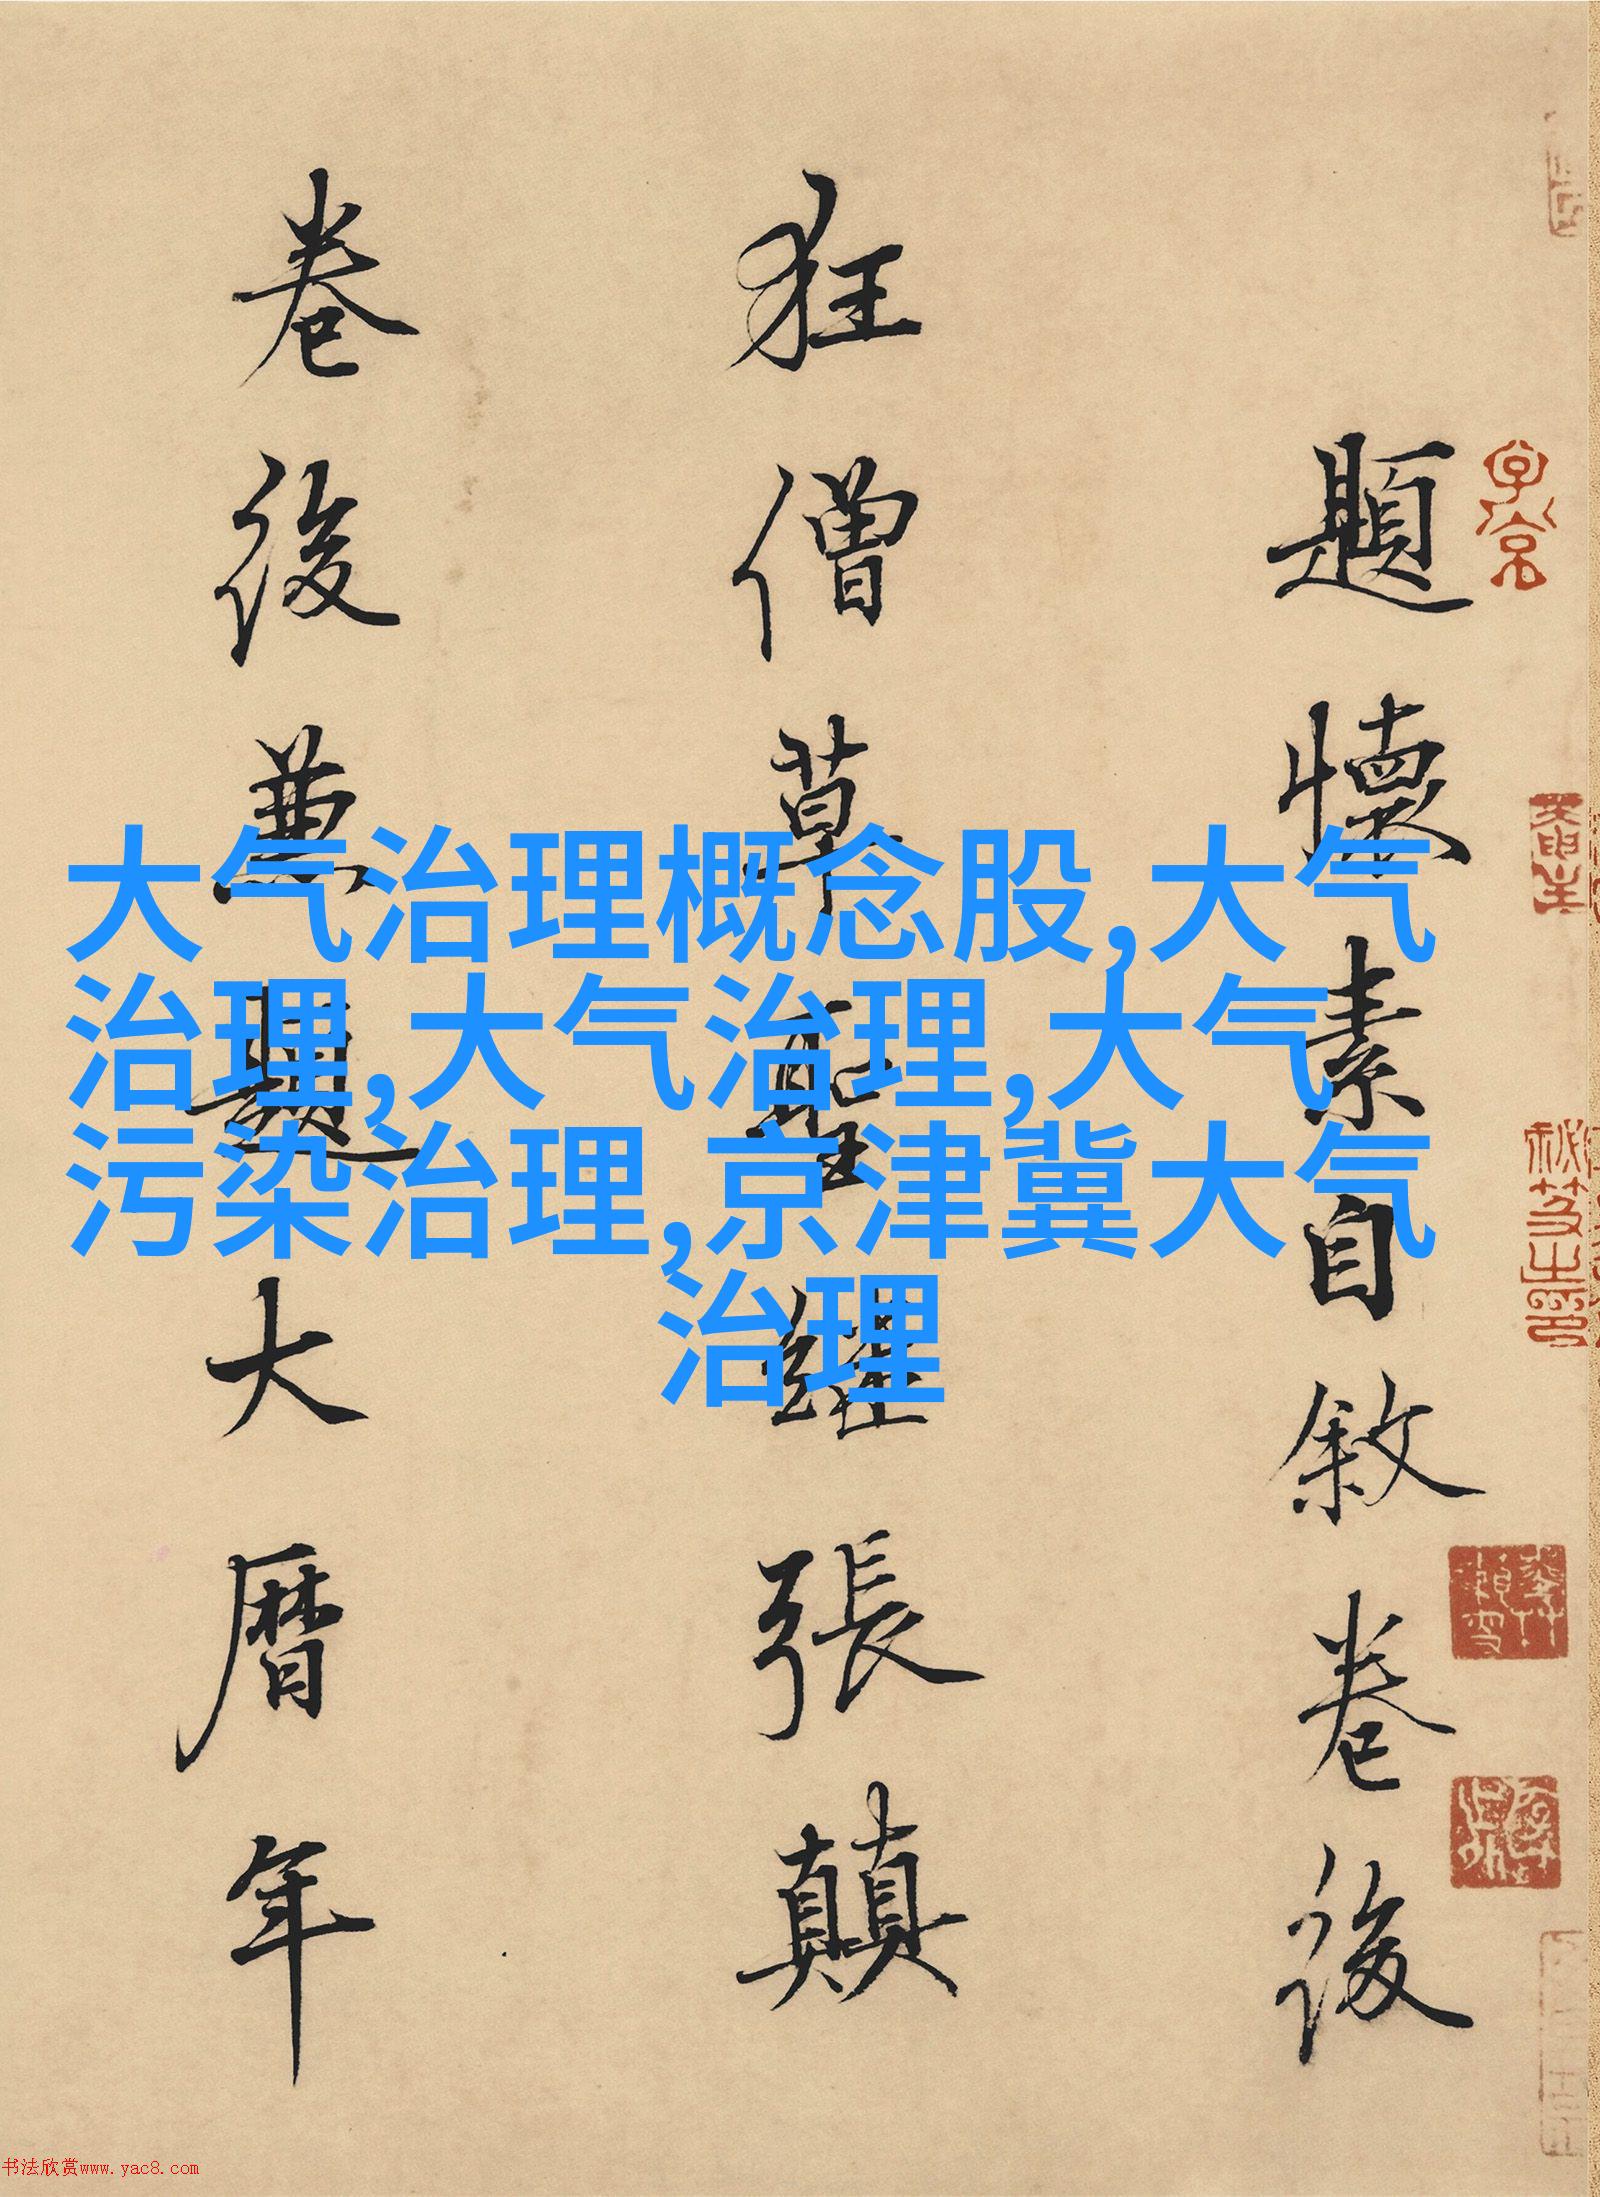 題懷素自敘卷後
狂僧草聖繼張顛
卷後兼題大曆年
大气治理概念股,大气
治理,大气治理,大气
污染治理,京津冀大气
治理
书法欣赏www.yac8.com